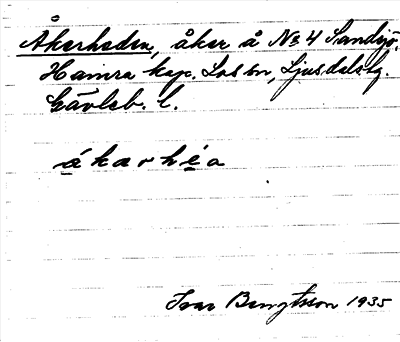 Åkerheden, åker å № 4 Sandsjö,
Hamra kap. Los sn, Ljusdals tg.
Gävleb. l.
ákarhéa
Ivar Bengtsson 1935